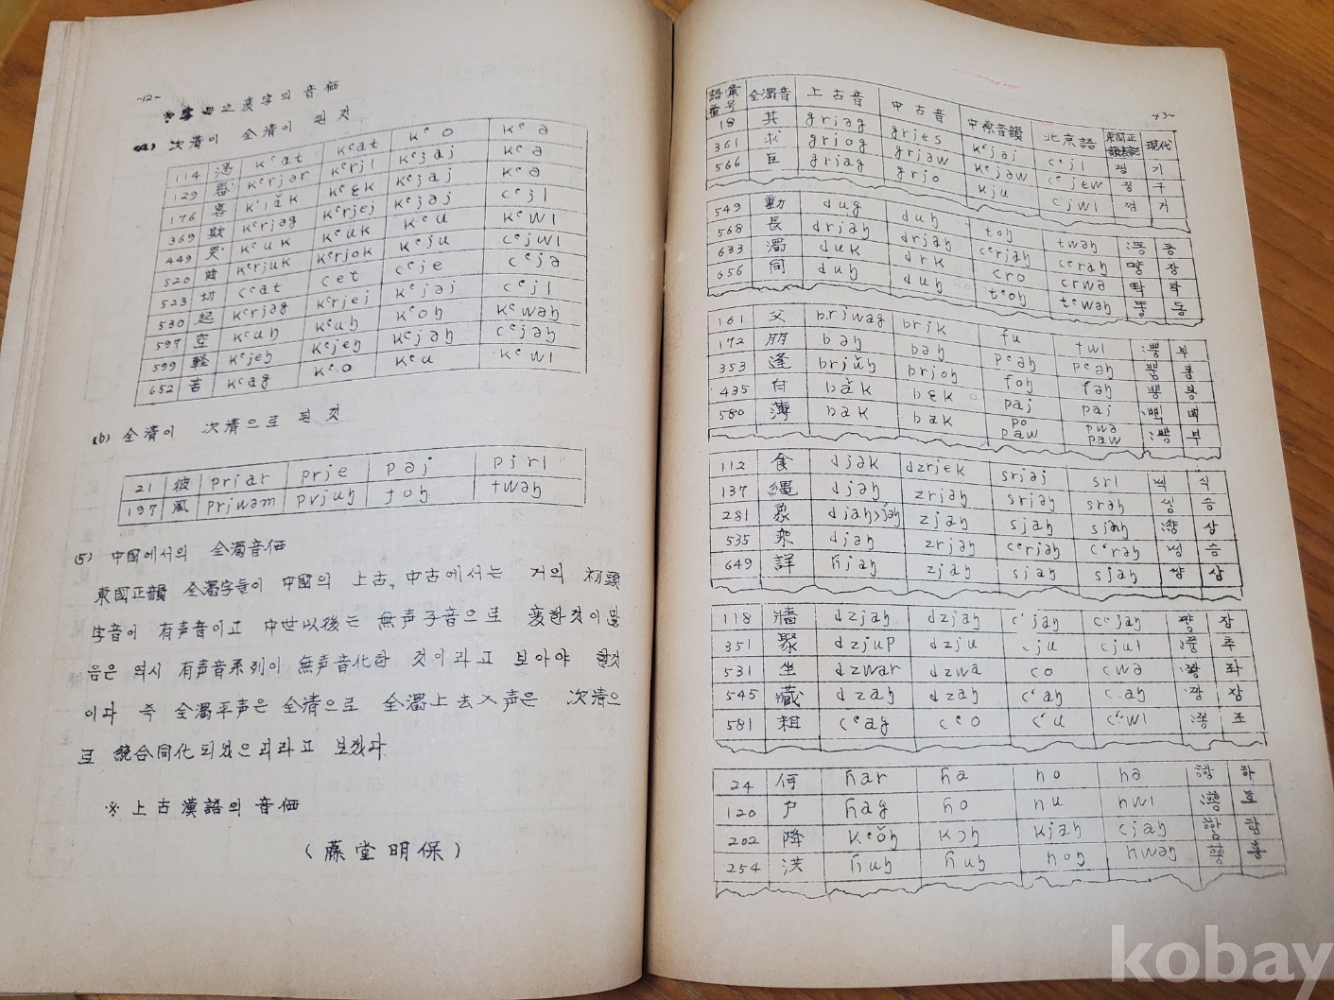 -12-
漢字의 音価
(a) 次清이 全清이 된 것
114 渴 kᶜat kᶜat kᶜo kᶜə
129 器 kᶜrjər kᶜrjl kᶜjəj kᶜə
176 客 kᶜlăk kᶜɛk kᶜjəj kᶜə
369 欺 kᶜrjəg kᶜrjej kᶜjəj cᶜjl
449 哭 kᶜuk kᶜuk kᶜu kᶜwl
520 kᶜrjuk kᶜrjok kᶜju cᶜjwl
523 切 cᶜət cet cᶜje cᶜjə
530 起 kᶜrjəg kᶜrjej kᶜjəj cᶜjl
597 空 kᶜuŋ kᶜuŋ kᶜoŋ kᶜwəŋ
599 軽 kᶜjeŋ kᶜjeŋ kᶜjəŋ cᶜjəŋ
652 苦 kᶜag kᶜo kᶜu kᶜwl
(b) 全清이 次清으로 된 것
21 彼 prjar prje pəj pjrl
197 風 prjwəm prjuŋ foŋ fwəŋ
(5) 中國에서의 全濁音価
東國正韻 全濁字들이 中國의 上古, 中古에서는 거의 初頭
字音이 有声音이고 中世以後는 無声子音으로 変한것이
음은 역시 有声音系列이 無声音化한 것이라고 보아야 할것
이다 즉 全濁平声은 全清으로 全濁上去入声은 次清으
로 統合同化되었으리라고 보겠다
※ 上古漢語의 音価
(藤堂明保)
-13-
語彙番号 全濁音 上古音 中古音 中原音韻 北京語 東國正韻表記 現代
18 其 grjəg grjes kᶜjəj cᶜjl 끵 기
361 求 grjog grjəw kᶜjəw cᶜjew 구
566 巨 grjag grjo kju cjwl 거
549 動 dug duŋ toŋ twəŋ 동
568 長 drjaŋ drjaŋ cᶜrjaŋ cᶜraŋ 땽 장
633 濁 duk drk cro crwə 탁
656 同 duŋ duŋ tᶜoŋ tᶜwəŋ 똥 동
161 父 brjwag brjk fu fwl :뿡 부
172 朋 bəŋ bəŋ pᶜəŋ pᶜəŋ 뿡 붕
353 逢 brjŭŋ brjoŋ foŋ fəŋ 뽕 봉
435 白 băk bɛk paj paj 백
580 薄 bak bak po paw pwə paw
112 食 djək dzrjek srjəj srl 씩 식
137 縄 djəŋ zrjəŋ srjəŋ srəŋ 씽 승
281 象 djaŋ>jaŋ zjaŋ sjaŋ sjaŋ :썅 상
535 乘 djəŋ zrjəŋ cᶜrjəŋ cᶜrəŋ 씽 승
649 詳 ɦjaŋ zjaŋ sjaŋ sjaŋ 썅 상
118 牆 dzjaŋ dzjaŋ cᶜjaŋ cᶜjaŋ 쨩 장
351 聚 dzjup dzju cju cjul 추
531 坐 dzwar dzwa co cwə 좌
545 藏 dzaŋ dzaŋ cᶜaŋ caŋ 짱 장
581 粗 cᶜag cᶜo cᶜu cᶜwl 조
24 何 ɦar ɦa ho hə 하
120 戶 ɦag ɦo hu hwl 호
202 降 kᶜŏŋ kɔŋ kjaŋ cjaŋ 항
254 洪 ɦuŋ ɦuŋ hoŋ hwəŋ 홍
kobay